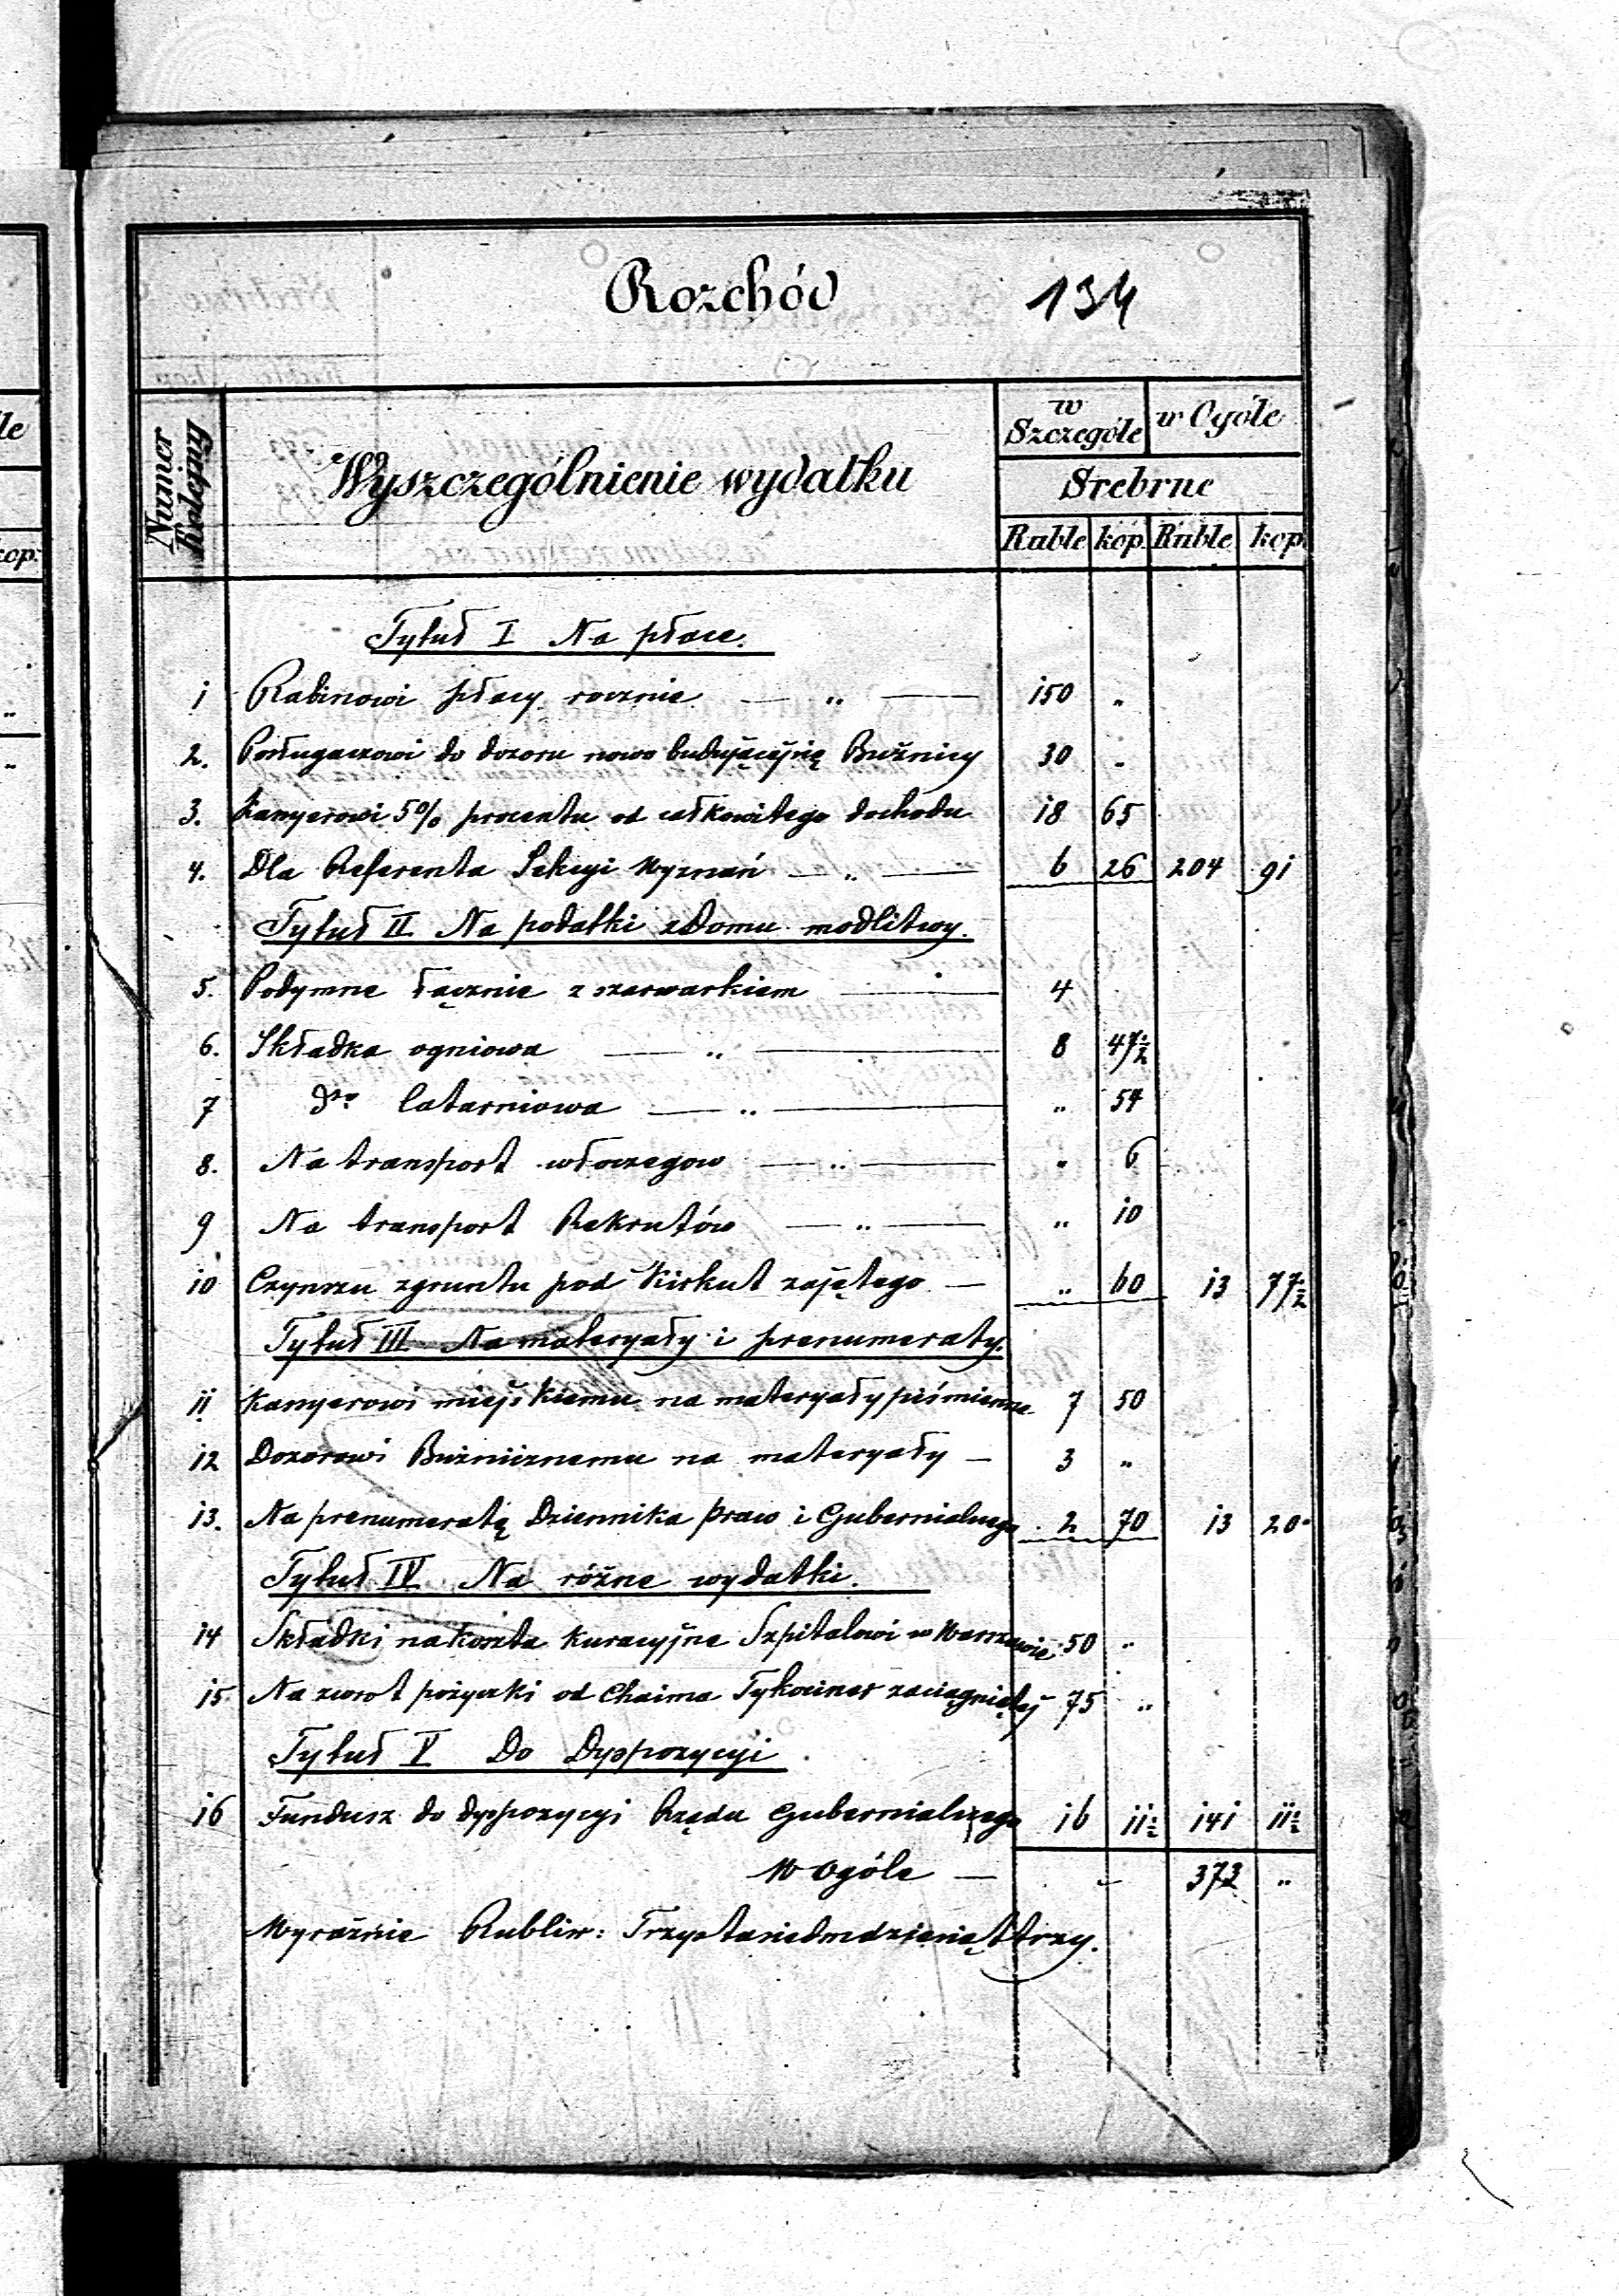 Rozchód 134
Numer Kolejny
Wyszczególnienie wydatku
w Szczególe
w Ogóle
Srebrne
Ruble kop. Ruble kop.
Tytuł I Na płace.
1 Rabinowi płacy rocznie — „ — 150 „
2. Posługaczowi do dozoru nowo budującej się Bużnicy 30 „
3. Kassyerowi 5% procentu od całkowitego dochodu 18 65
4. Dla Referenta Sekcyi Wyznań — „ — 6 26 204 91
Tytuł II Na podatki z Domu modlitwy.
5. Podymne łącznie z szarwarkiem — 4
6. Składka ogniowa — „ — 8 47½
7 dto latarniowa — „ — „ 54
8. Na transport włoczegow — „ — „ 6
9 Na transport Rekrutów — „ — „ 10
10 Czynszu zgruntu pod Kirkut zajętego — „ 60 13 77½
Tytuł III Na materyały i prenumeraty.
11 Kassyerowi miejskiemu na materyały piśmienne 7 50
12 Dozorowi Bużnicznemu na materyały — 3 „
13. Na prenumeratę Dziennika praw i Gubernialnego 2 70 13 20
Tytuł IV Na różne wydatki.
14 Składki na koszta kuracyjne Szpitalowi w Warszawie 50 „
15 Na zwrot pożyczki od Chaima Tykociner zaciągniętej 75 „
Tytuł V Do Dyspozycyi
16 Fundusz do dyspozycyi Rządu Gubernialnego 16 11½ 141 11½
W Ogóle — 373 „
Wyraźnie Rubli sr: Trzysta siedmdziesiąt trzy.
le
kop.